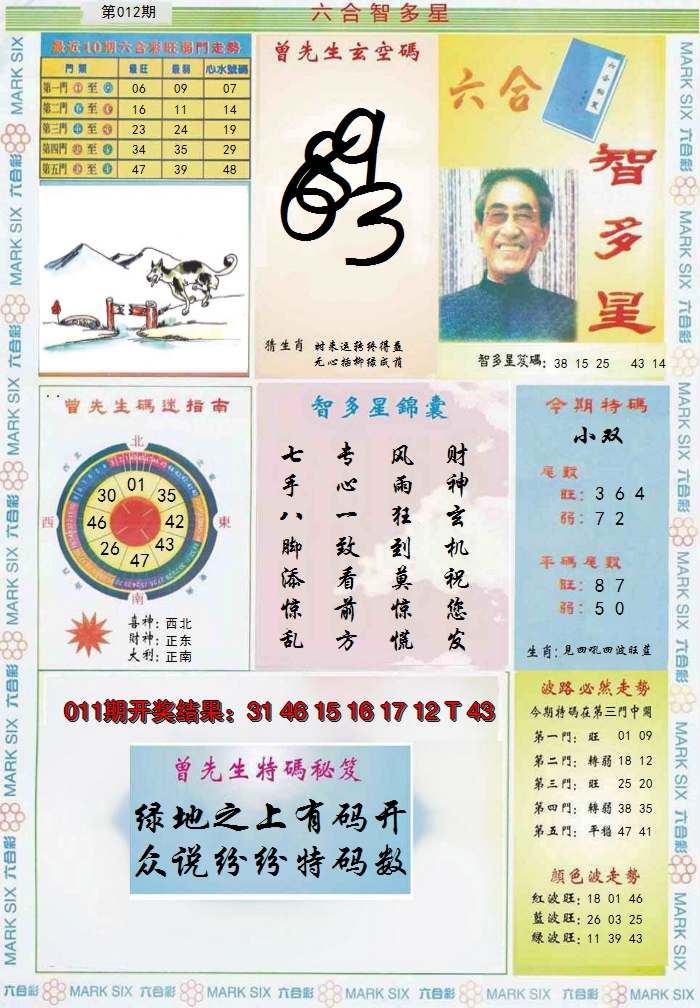 第012期
六合智多星
最近10期六合彩旺弱門走勢
門類 最旺 最弱 心水號碼
第一門 至 06 09 07
第二門 至 16 11 14
第三門 至 23 24 19
第四門 至 34 35 29
第五門 至 47 39 48
曾先生玄空碼
猜生肖 时来运转终得益
无心插柳绿成荫
六合
六合秘笈
智多星
智多星笈碼: 38 15 25 43 14
曾先生碼迷指南
北
西
東
南
01
35
42
43
47
26
46
30
喜神: 西北
財神: 正东
大利: 正南
智多星錦囊
财神玄机祝您发
风雨狂到莫惊慌
专心一致看前方
七手八脚添惊乱
今期特碼
小双
尾數
旺: 3 6 4
弱: 7 2
平碼尾數
旺: 8 7
弱: 5 0
生肖: 見四吼四波旺蓝
011期开奖结果: 31 46 15 16 17 12 T 43
曾先生特碼秘笈
绿地之上有码开
众说纷纷特码数
波路必然走勢
今期特碼在第三門中開
第一門: 旺 01 09
第二門: 轉弱 18 12
第三門: 旺 25 20
第四門: 轉弱 38 35
第五門: 平穩 47 41
顔色波走勢
紅波旺: 18 01 46
藍波旺: 26 03 25
綠波旺: 11 39 43
六合彩 MARK SIX 六合彩 MARK SIX 六合彩 MARK SIX 六合彩 MARK SIX 六合彩